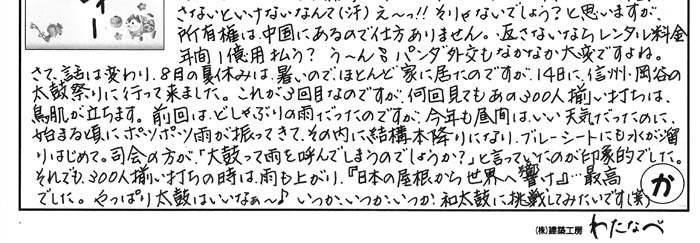 さないといけないなんて(汗)え〜っ!!そりゃないでしょう?と思いますが、
所有権は、中国にあるので仕方ありません。返さないならレンタル料金
年間1億用払う?う〜ん。パンダ外交もなかなか大変ですよね。
さて、話は変わり、8月の夏休みは、暑いので、ほとんど家に居たのですが、14日に、信州・岡谷の
太鼓祭りに行って来ました。これが3回目なのですが、何回見てもあの300人揃い打ちは、
鳥肌が立ちます。前回は、どしゃぶりの雨だったのですが、今年も昼間は、いい天気だったのに、
始まる頃にポツポツ雨が振ってきて、その内に結構本降りになり、ブルーシートにも水が溜
りはじめて。司会の方が、「太鼓って雨を呼んでしまうのでしょうか?」と言っていたのが印象的でした。
それでも、300人揃い打ちの時は、雨も上がり、『日本の屋根から世界へ響け』…最高
でした。やっぱり太鼓はいいなぁ〜♪いつか、いつか、いつか、和太鼓に挑戦してみたいです(笑)
か
(株)建築工房 わたなべ